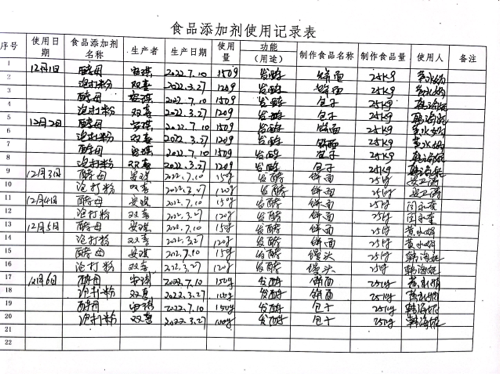 食品添加剂使用记录表
序号 使用日期 食品添加剂名称 生产者 生产日期 使用量 功能（用途） 制作食品名称 制作食品量 使用人 备注
1 12月1日 酵母 安琪 2022.7.10 150g 发酵 饼面 25kg
2 泡打粉 双喜 2022.3.27 120g 发酵 饼面 25kg
3 酵母 安琪 2022.7.10 150g 发酵 包子 25kg
4 泡打粉 双喜 2022.3.27 120g 发酵 包子 25kg
5 12月2日 酵母 安琪 2022.7.10 150g 发酵 饼面 25kg
6 泡打粉 双喜 2022.3.27 120g 发酵 饼面 25kg
7 酵母 安琪 2022.7.10 150g 发酵 包子 25kg
8 泡打粉 双喜 2022.3.27 120g 发酵 包子 25kg
9 12月3日 酵母 安琪 2022.7.10 150g 发酵 饼面 25kg
10 泡打粉 双喜 2022.3.27 120g 发酵 饼面 25kg
11 12月4日 酵母 安琪 2022.7.10 150g 发酵 饼面 25kg
12 泡打粉 双喜 2022.3.27 120g 发酵 饼面 25kg
13 12月5日 酵母 安琪 2022.7.10 150g 发酵 饼面 25kg
14 泡打粉 双喜 2022.3.27 120g 发酵 饼面 25kg
15 酵母 安琪 2022.7.10 150g 发酵 馒头 25kg
16 泡打粉 双喜 2022.3.27 120g 发酵 馒头 25kg
17 12月6日 酵母 安琪 2022.7.10 150g 发酵 饼面 25kg
18 泡打粉 双喜 2022.3.27 发酵 饼面 25kg
19 酵母 安琪 2022.7.10 150g 发酵 包子 25kg
20 泡打粉 双喜 2022.3.27 发酵 包子 25kg
21
22